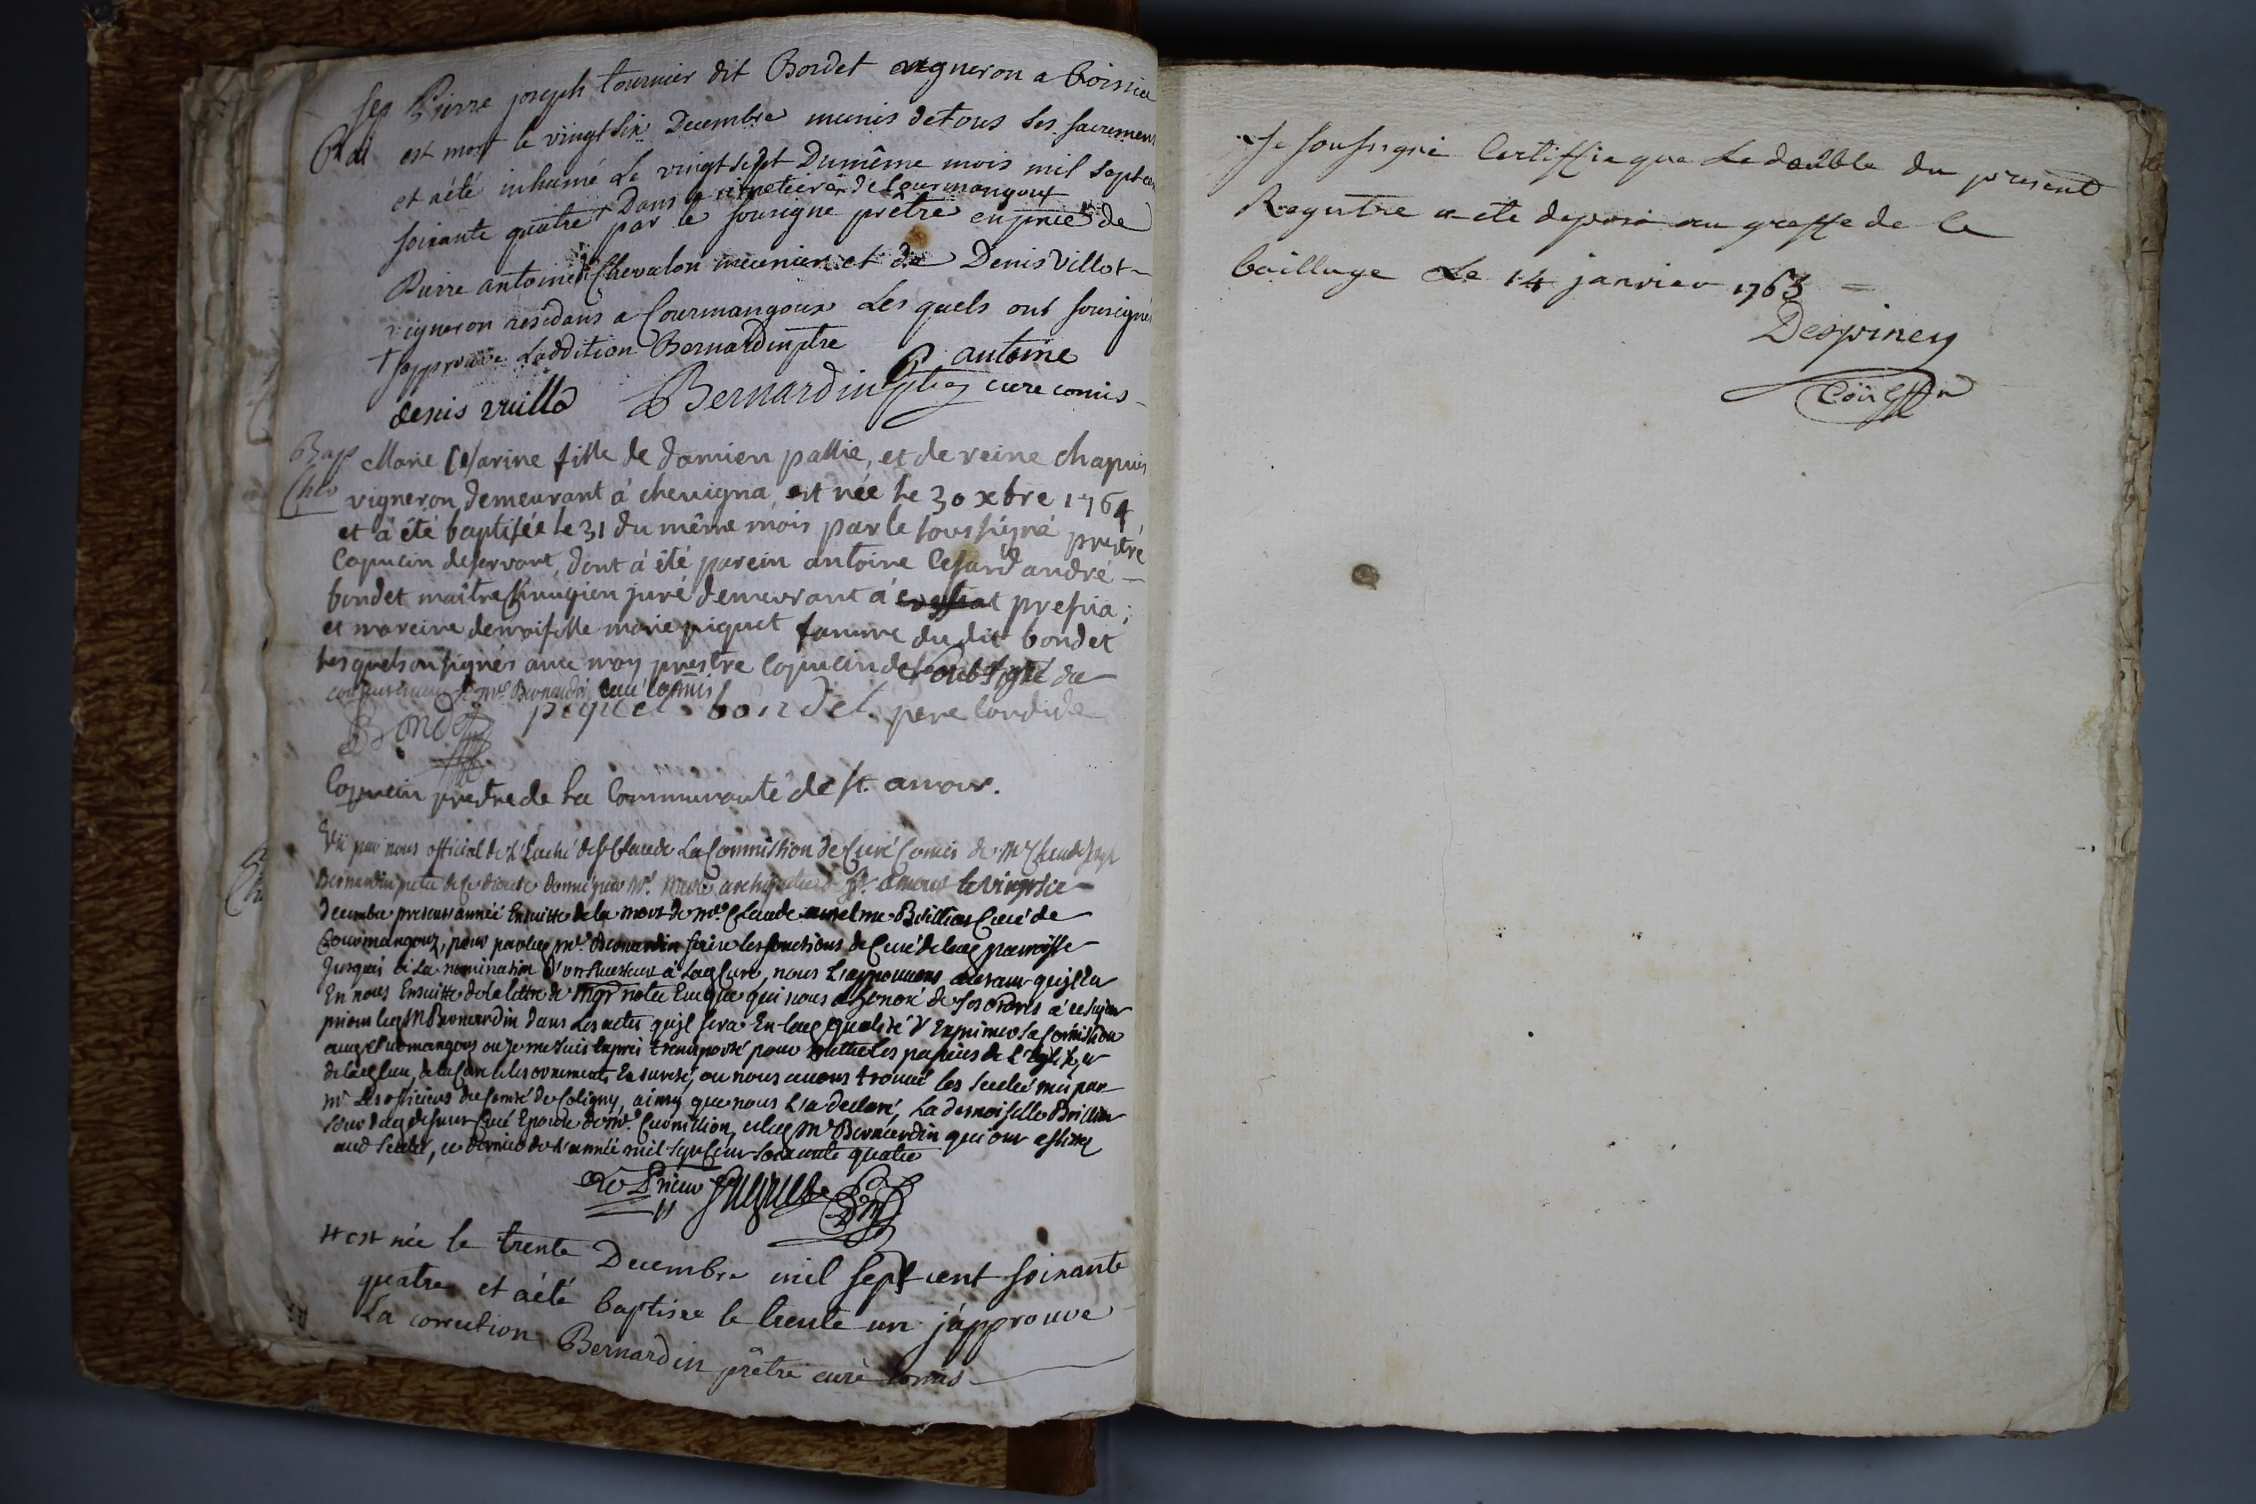 Sep Pierre joseph tournier dit Bordet vigneron a boissia
est mort le vingt six Decembre munis detous ses sacremens
et aété inhumé Le vingt sept Dumême mois mil sept cen
soixante quatre † Dans le cimetiere de Courmangoux
par le sousigné prêtre en pnce de
Pierre antoine Chevalon meunier et de Denis Villot
vigneron residans a Courmangoux Les quels ont sousignés
† japprouve Laddition Bernardin ptre
P antoine
denis vuillo Bernardin ptre cure comis
Bap
Marie Cesarine fille de damien pallie, et de reine chapuis
vigneron, demeurant á chevigna, est née le 30 xbre 1764
et á été baptisée le 31 du même mois par le soussigné prestre
Capucin deservant, dont á été parein antoine Cesard andré
bondet maître Chirugien juré demeurant á presia;
et mareine demoiselle marie piquet famme du dit bondet
lesquels on signés avec moy prestre Capucin
Mre Bernardin, curé commis
Bondet piquet bondet pere Candide
Capucin prestre de La Communauté de st. amour.
Vu par nous official de L'Eveché de St Claude La Commission de Curé Comis de Mre Claude
Bernardin donné par Mr. st. amour le vingt six
Decembre presente année Ensuitte de la mort de Mre Claude anselme Curé de
Courmangoux, pour par led Mr. Bernardin faire les fonctions de Curé de lad paroisse
Jusques á La nomination d'un successeur á lad Cure, nous L'approuvons
En nous Ensuitte de la lettre de Mgr notre Eveque qui nous a honoré de ses ordres á ce sujet
prions led Mr Bernardin dans Les actes qu'il fera En lad qualité d'Exprimer sa Commission
ou je me suis Exprès transporté pour mettre les papiers de L'Eglise, et
de la Cure Les ornements En sureté, ou nous avons trouvé les scellés mis par
Mrs Les officiers du Comté de Coligny, ainsy que nous L'a declaré, La demoiselle
et led Mr Bernardin qui ont assisté
aud scellé, ce dernier de L'année mil sept cent soixante quatre
# est née le trente Decembre mil sept cent soixante
quatre et aété baptisee le trente un japprouve
La correction Bernardin prêtre curé comis
Je soussigné Certiffie que Le double du present
Registre a ete deposé au greffe de ce
bailliage Le 14 janvier 1763
Despiney